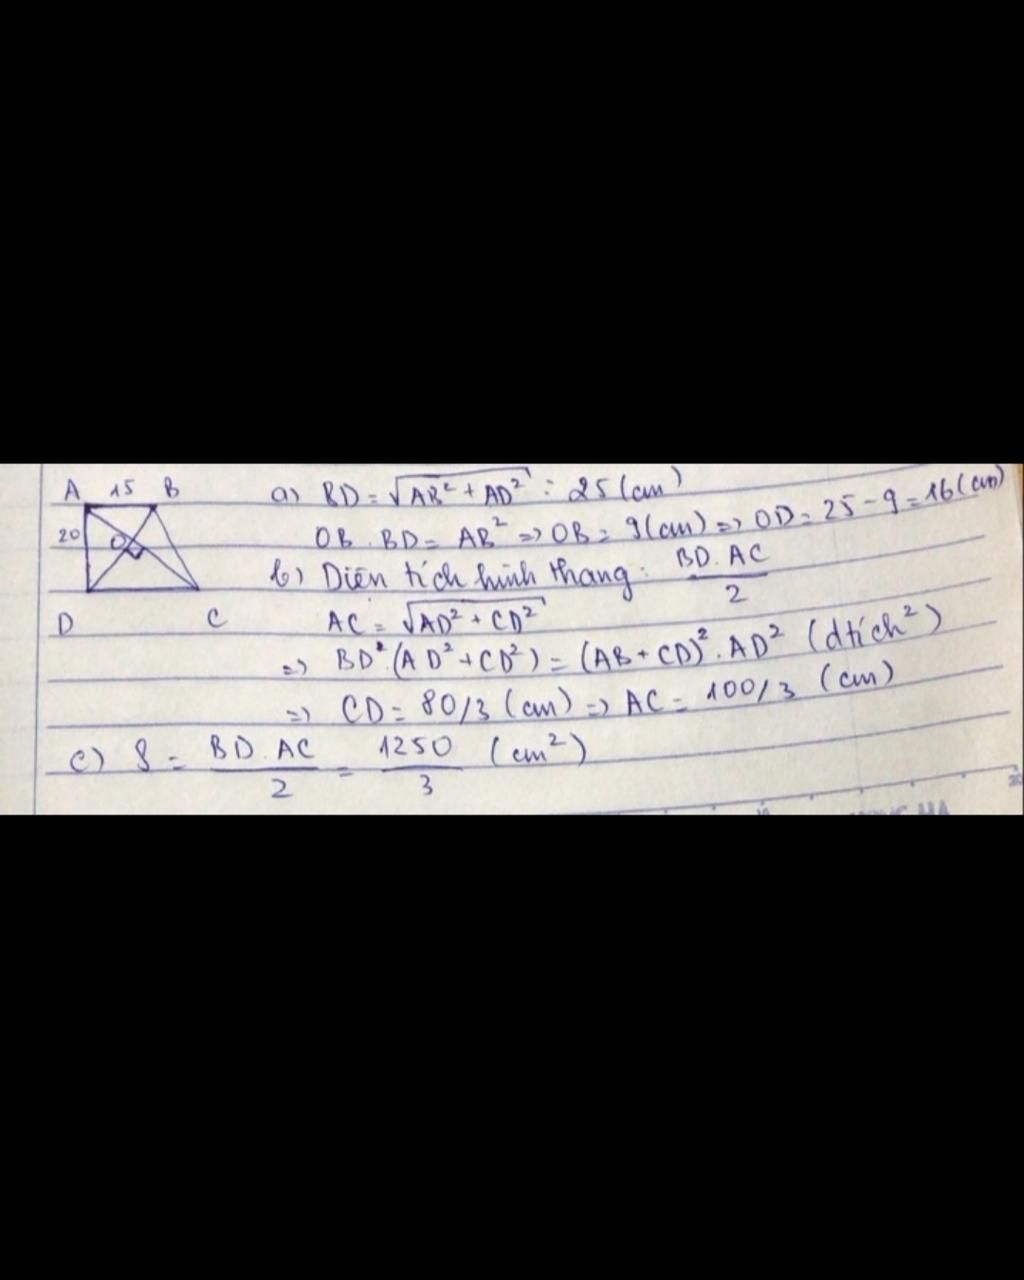 A 15 B
20
O
D C
a) BD = √AB² + AD² = 25 (cm)
OB . BD = AB² => OB = 9 (cm) => OD = 25 - 9 = 16 (cm)
b) Diện tích hình thang : BD . AC / 2
AC = √AD² + CD²
=> BD² . (AD² + CD²) = (AB + CD)² . AD² (dtích²)
=> CD = 80/3 (cm) => AC = 100/3 (cm)
c) S = BD . AC / 2 = 1250 / 3 (cm²)